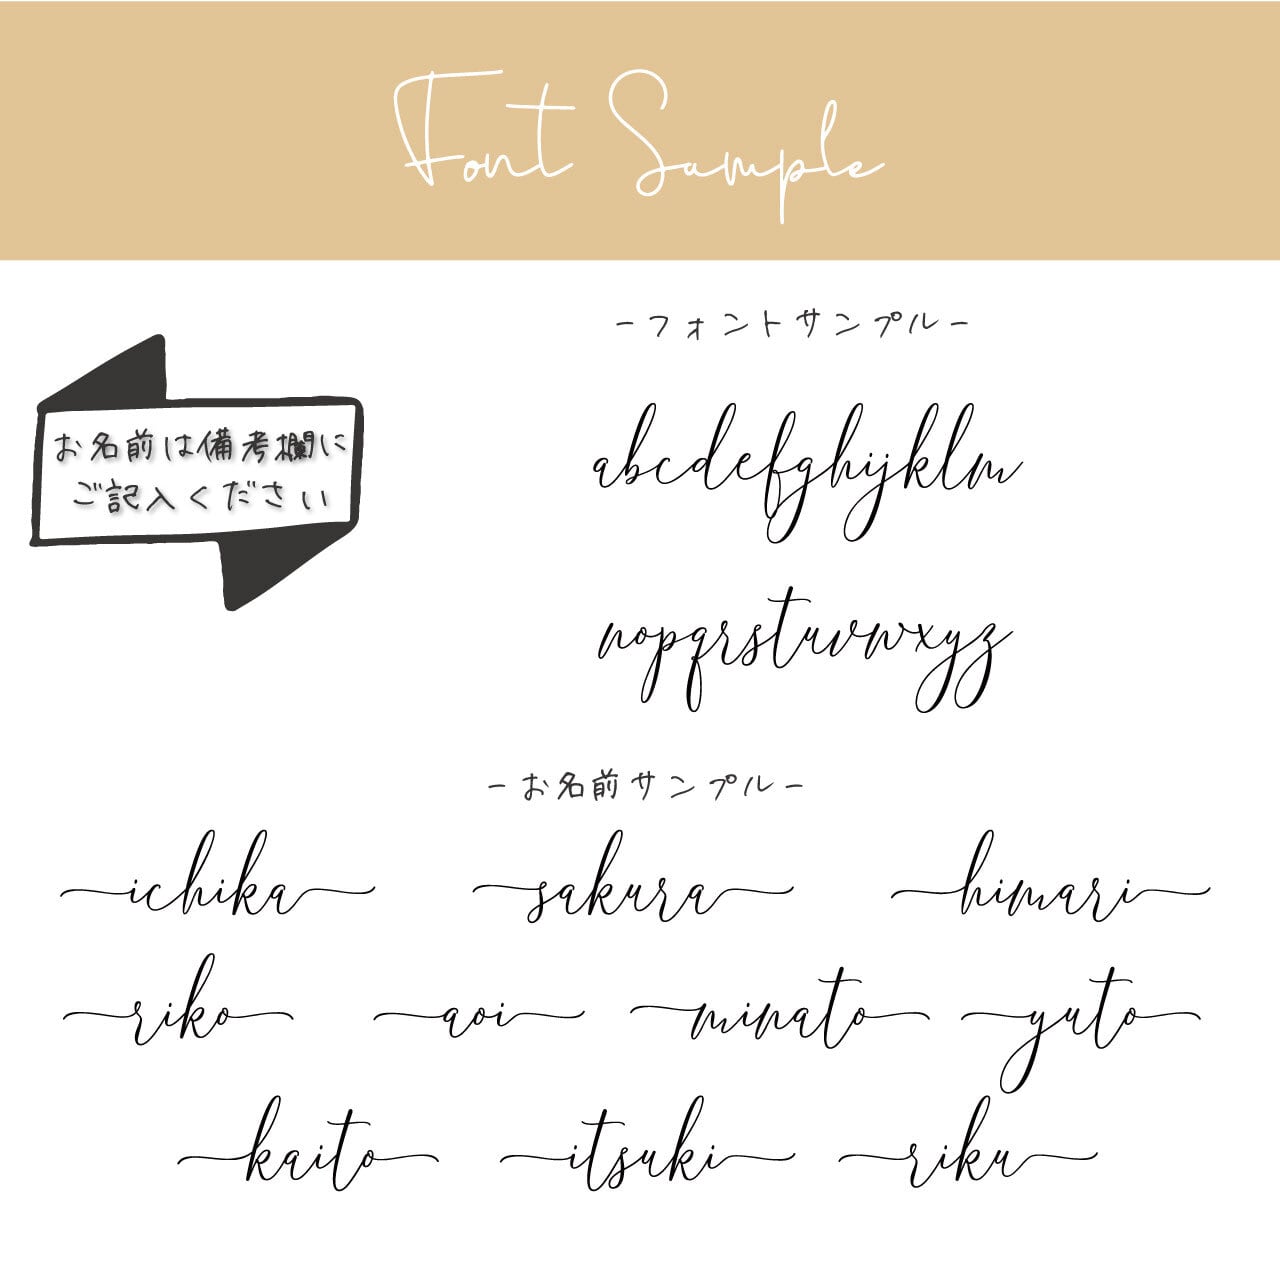 Font Sample
-フォントサンプル-
お名前は備考欄に
ご記入ください
abcdefghijklm
nopqrstuvwxyz
-お名前サンプル-
ichika sakura himari
riko aoi minato yuto
kaito itsuki riku